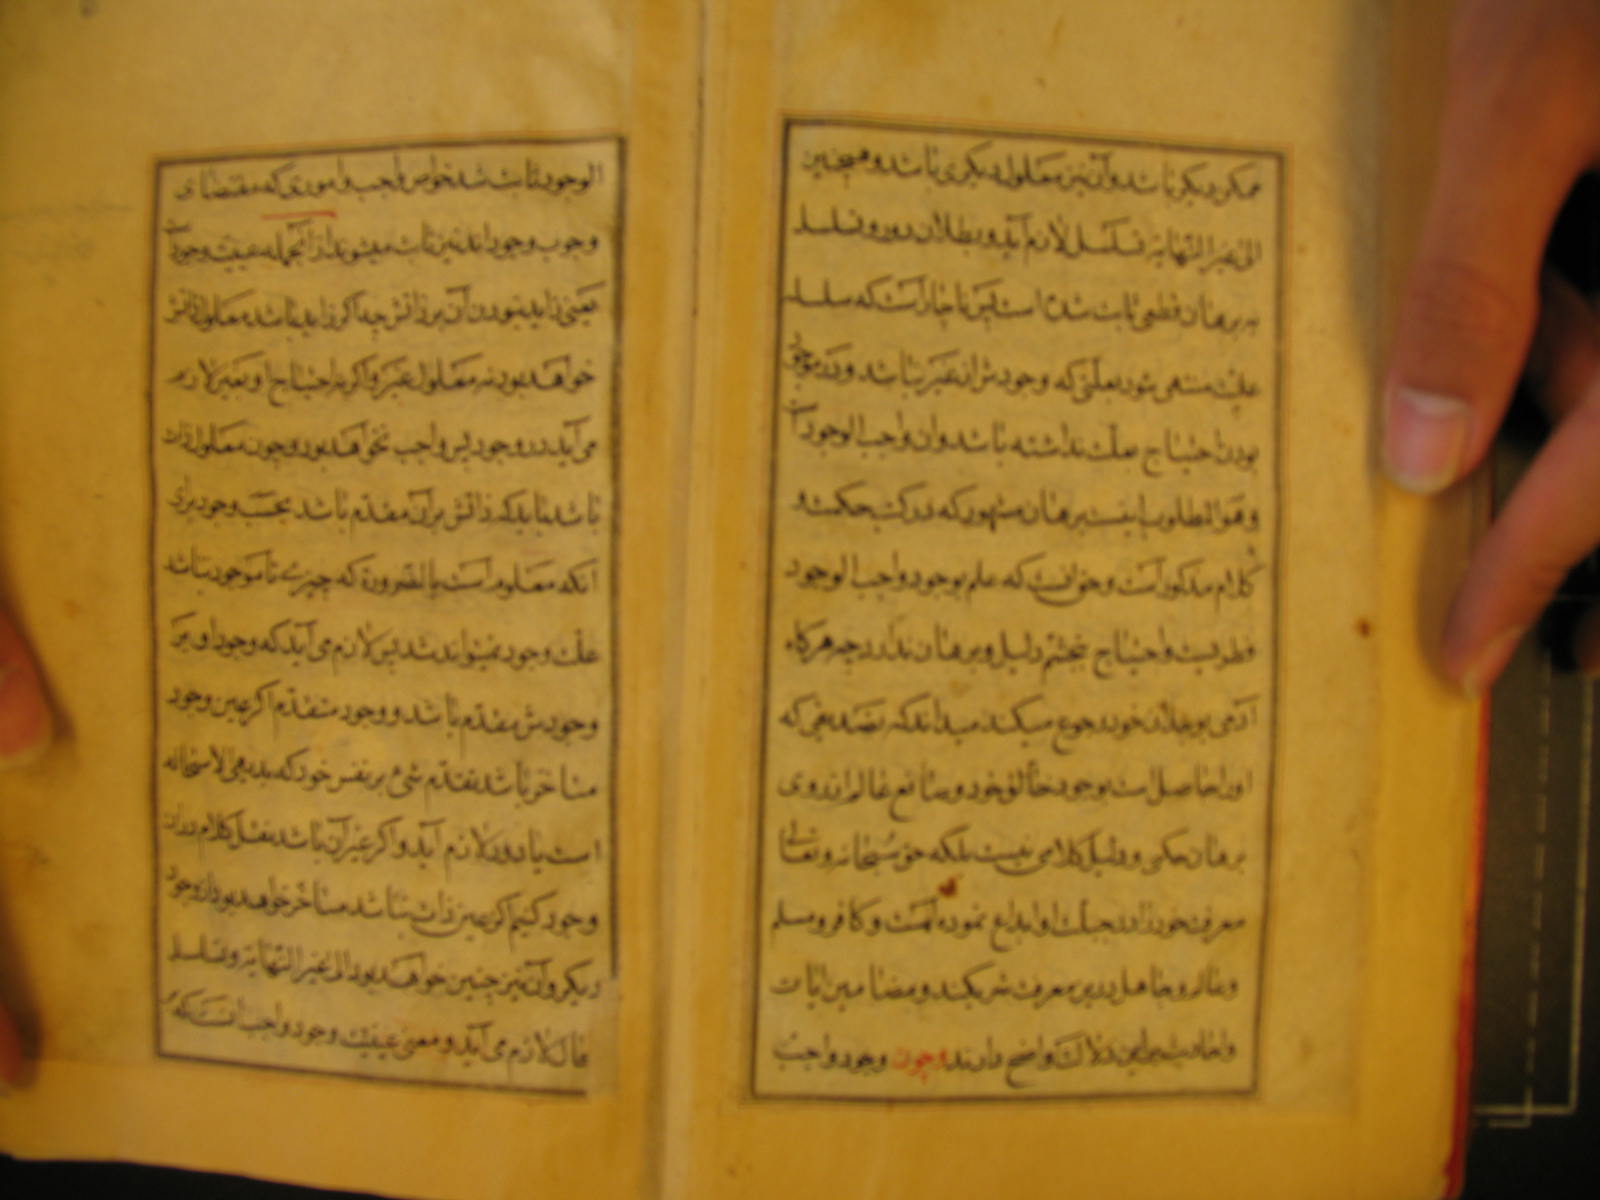 ممکن دیگر باشد و آن نیز معلول دیگری باشد و همچنین
الی غیر النهایه تسلسل لازم آید و بطلان دور و تسلسل
ببرهان قطعی ثابت شده است پس ناچار است که سلسله
علت منتهی شود بعلتی که وجودش از غیر نباشد و در موجود
بودن احتیاج بعلت نداشته باشد و ان واجب الوجود است
و هو المطلوب اینست برهان مشهور که در کتب حکمت و
کلام مذکور است و حق انست که علم بوجود واجب الوجود
فطریست و احتیاج بتجشم دلیل و برهان ندارد چه هرگاه
آدمی بوجدان خود رجوع میکند میداند که تصدیقی که
او را حاصل است بوجود خالق خود و صانع عالم از روی
برهان حکمی و دلیل کلامی نیست بلکه حق سبحانه و تعالی
معرفت خود را در جبلت او ابداع نموده است و کافر و مسلم
و عالم و جاهل درین معرفت شریکند و مضامین ایات
و احادیث بر این دلالت واضح دارند و چون وجود واجب
الوجود ثابت شد خواص واجب و اموری که مقتضای
وجوب وجود اند نیز ثابت میشوند از انجمله عینیت وجود است
یعنی زاید نبودن آن بر ذاتش چه اگر زاید باشد معلول ذاتش
خواهد بود نه معلول غیر و اگر نه احتیاج او بغیر لازم
می آید در وجود پس واجب نخواهد بود و چون معلول ذات
باشد باید که ذاتش بر آن مقدم باشد بحسب وجود برای
آنکه معلوم است بالضرورة که چیزی تا موجود نباشد
علت وجود نمیتواند شد پس لازم می آید که وجود او بر
وجودش مقدم باشد و وجود متقدم اگر عین وجود
متاخر باشد تقدم شیء بر نفس خود که بدیهی الاستحاله
است یا دور لازم آید و اگر غیر آن باشد نقل کلام در ان
وجود کنیم اگر عین ذات نباشد متاخر خواهد بود از وجود
دیگر و آن نیز چنین خواهد بود الی غیر النهایة و تسلسل
محال لازم می آید و معنی عینیت وجود واجب انست که